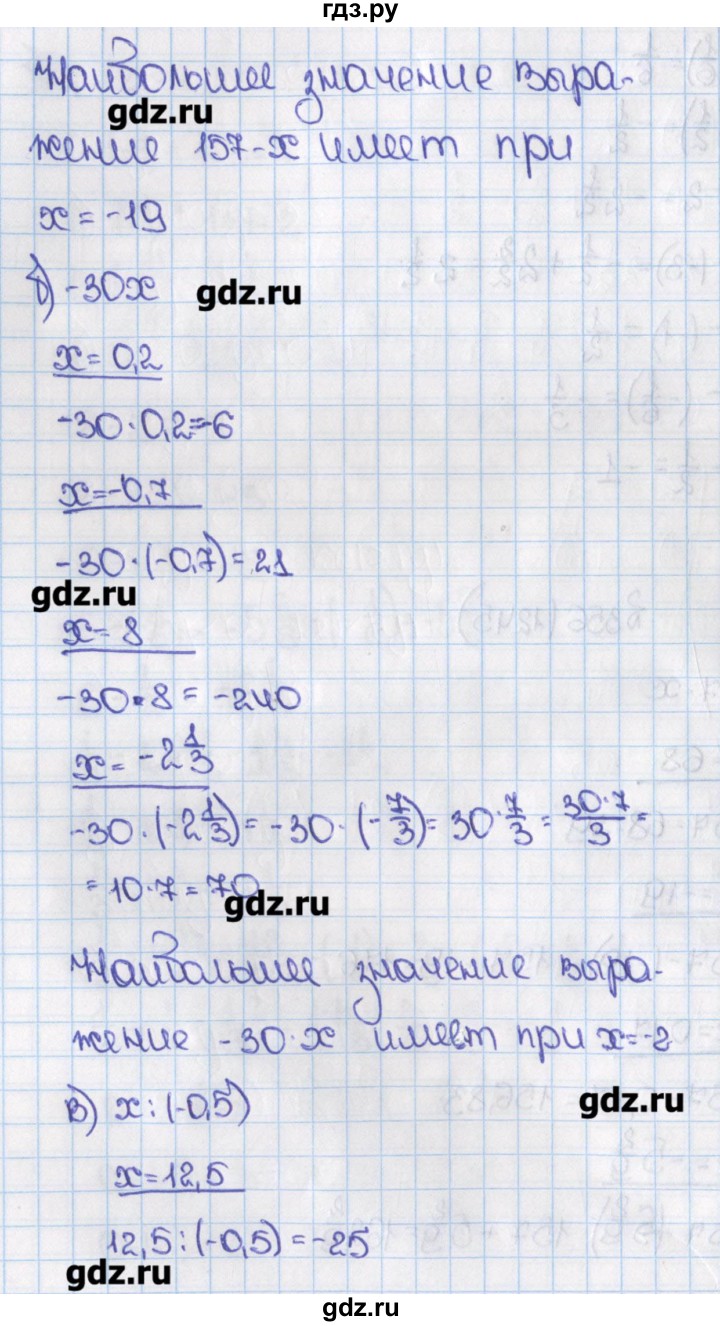 гдз.ру
Наибольшее значение выра-
gdz.ru
жение 157-x имеет при
x = -19
б) -30x
gdz.ru
x = 0,2
-30·0,2=-6
x=-0,7
-30·(-0,7)=21
gdz.ru
x=8
-30·8=-240
x= -2 1/3
-30·(-2 1/3)= -30·(-7/3)= 30·7/3 = 30·7/3 =
= 10·7 = 70
gdz.ru
Наибольшее значение выра-
жение -30·x имеет при x=-2
в) x:(-0,5)
gdz.ru
x=12,5
12,5:(-0,5)=-25
gdz.ru
gdz.ru